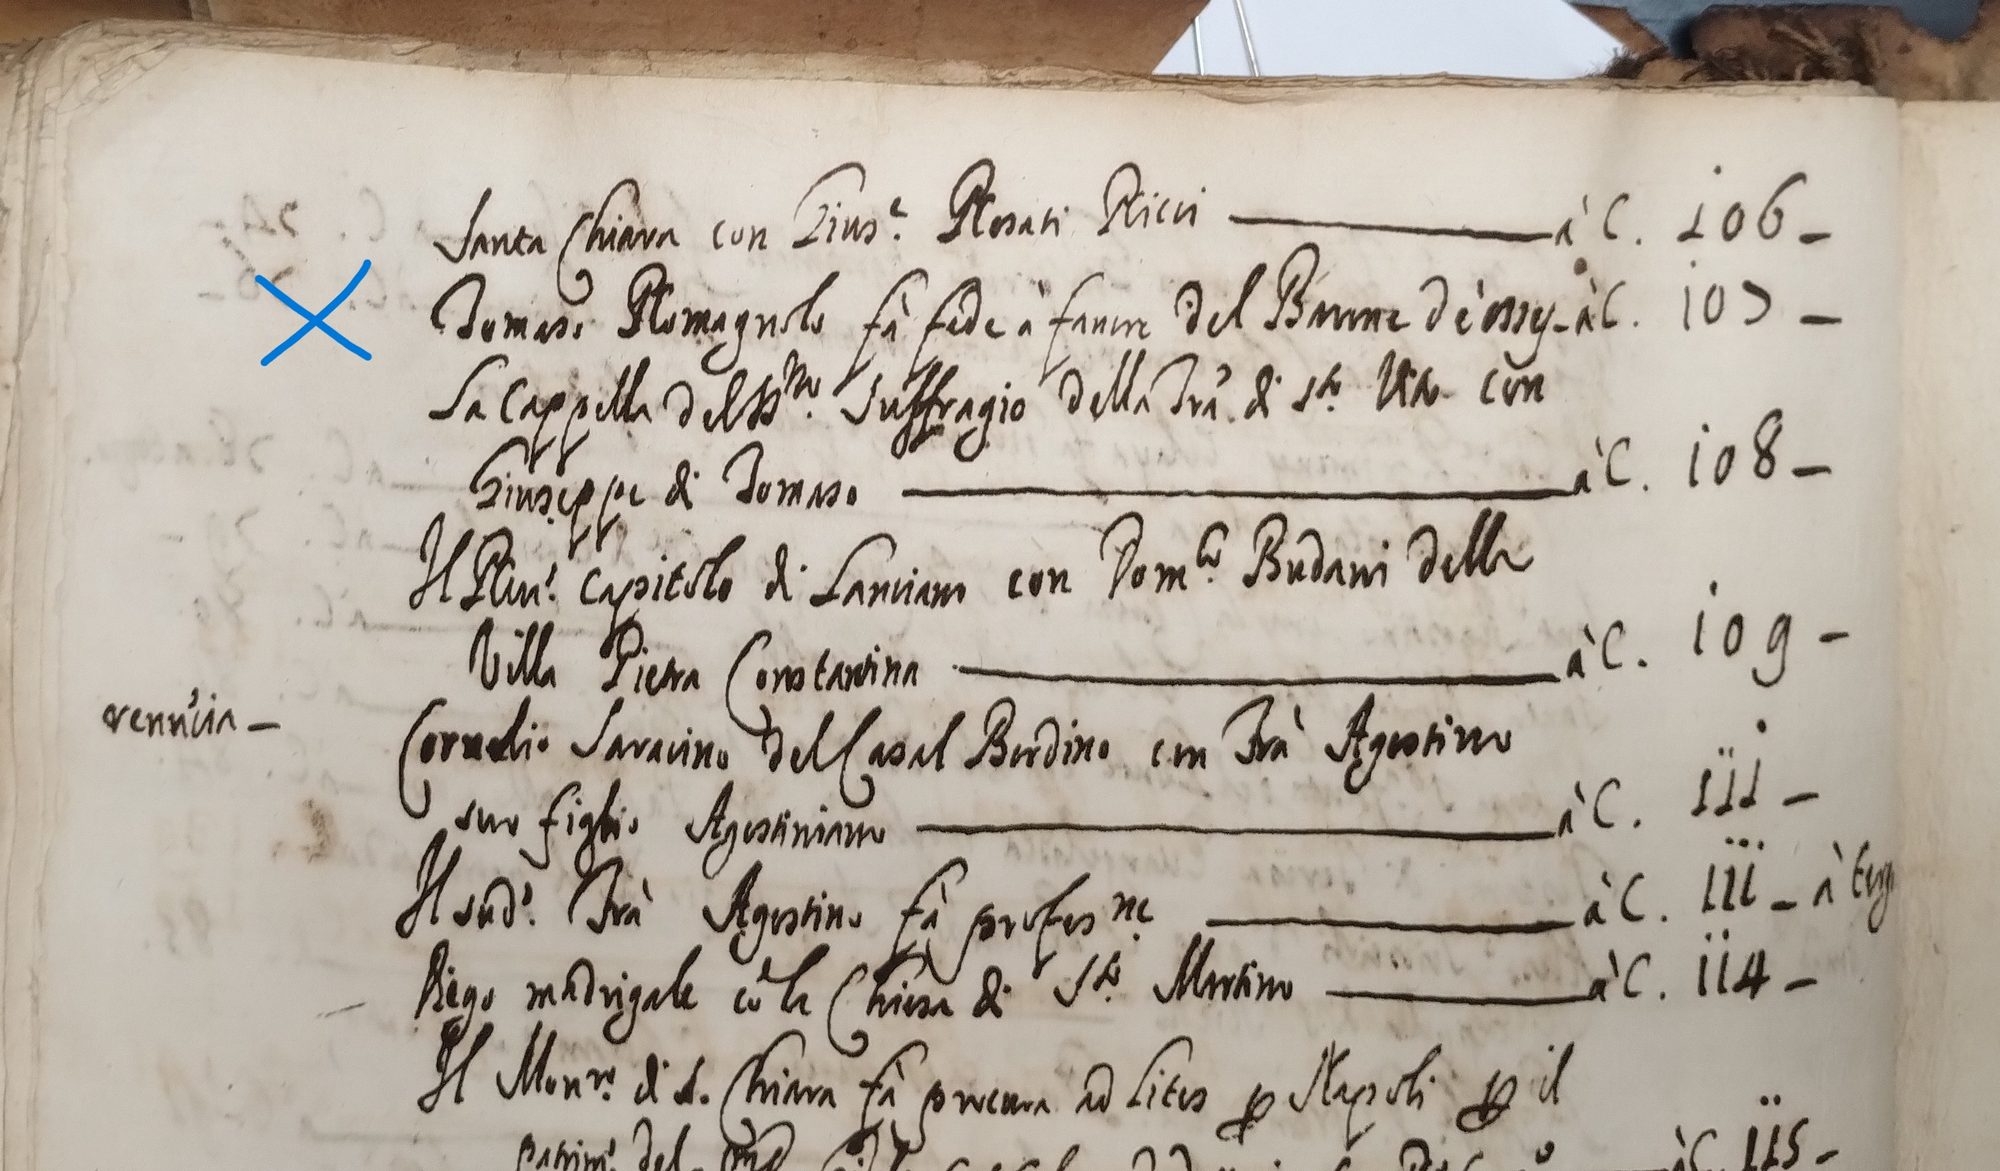 Santa Chiara con Gius.e Rosati Ricci à C. 106 -
Tomaso Romagnolo fà fede à favore del Barone d' à C. 107 -
La Cappella del SS.mo Suffragio della Trà di S.to Vito con
Giuseppe di Tomaso à C. 108 -
Il Rev.o Capitolo di Lanciano con Dom.co Budani della
Villa Pietra Constantina à C. 109 -
renuncia -
Cornelio Saracino del Casal Bordino con Frà Agostino
suo figlio Agostiniano à C. 111 -
Il sud.o Frà Agostino fà profes.ne à C. 111 - à terg
Piego madrigale cõ la Chiesa di S.to Martino à C. 114 -
Il Mon.ro di S. Chiara fà procura ad Lites p Napoli p il
del à C. 115 -